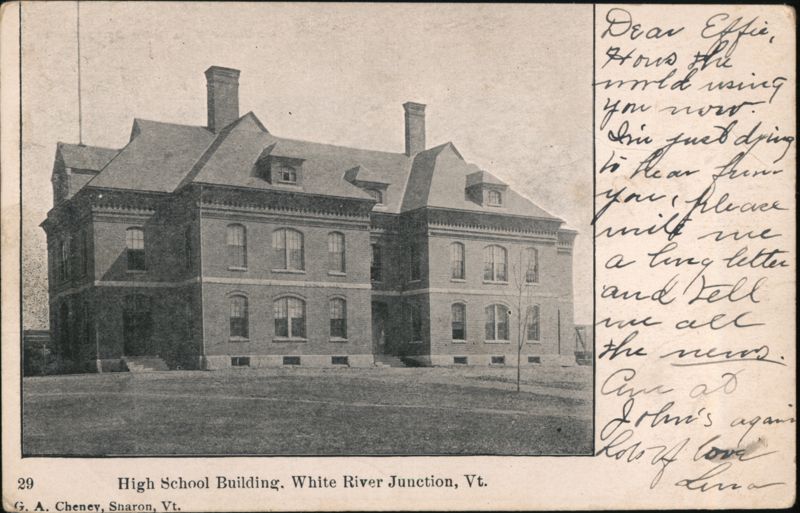 Dear Effie,
Hows the
world using
you now.
I'm just dying
to hear from
you, please
write me
a long letter
and tell
me all
the news.
Am at
John's again
Lots of love
Lena
29 High School Building, White River Junction, Vt.
G. A. Cheney, Sharon, Vt.